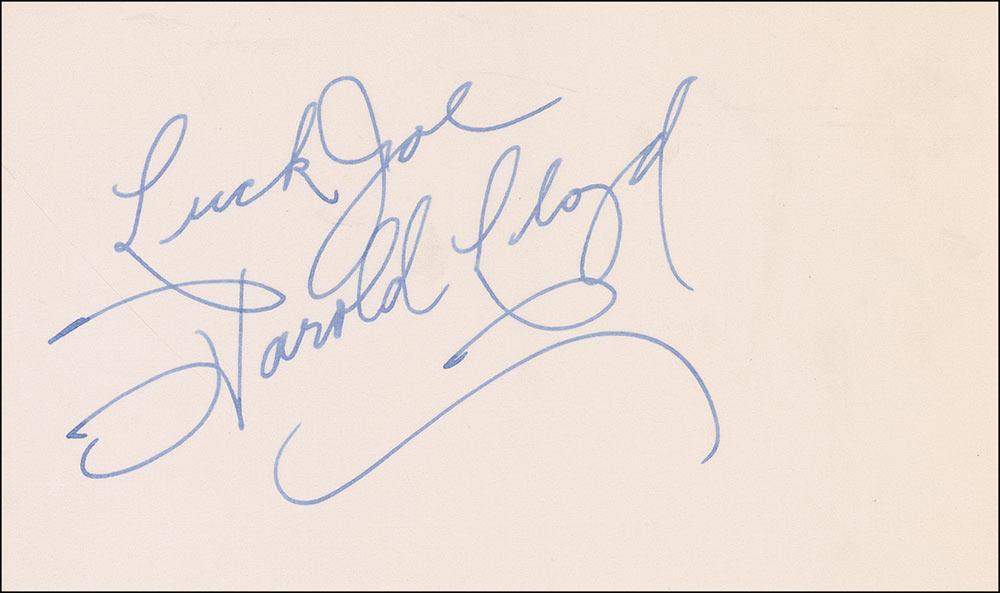 Luck Joe
Harold Lloyd